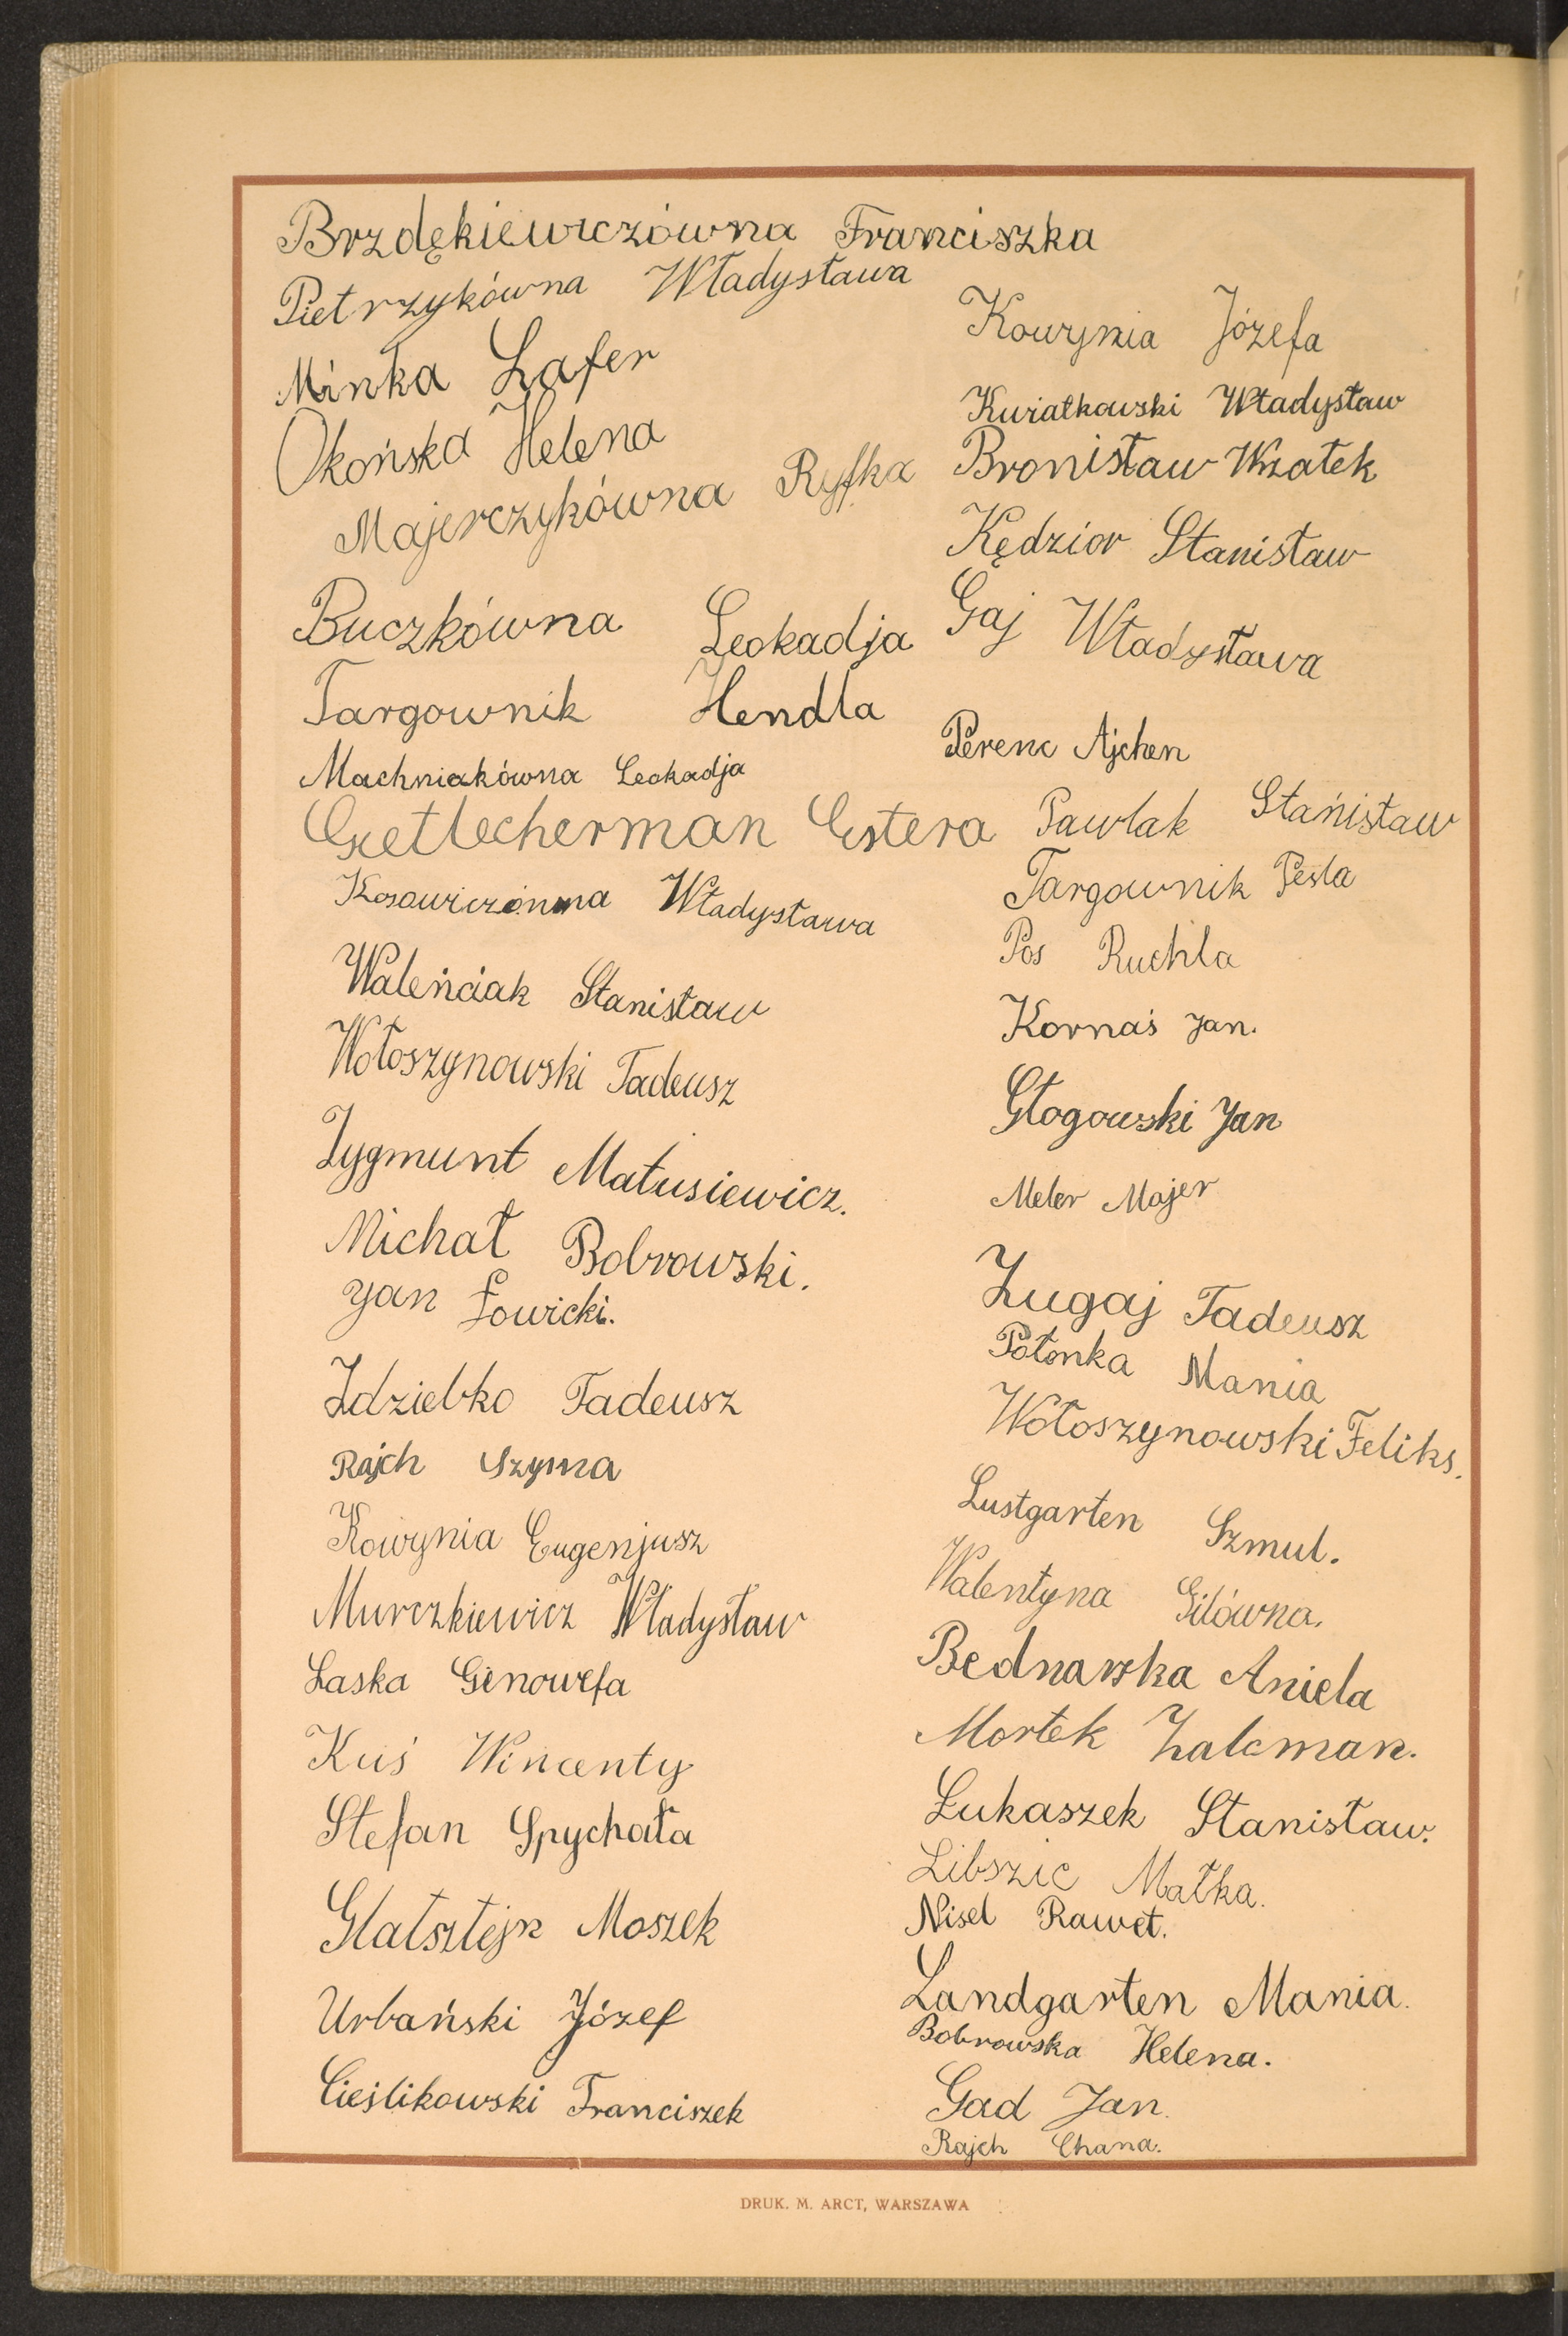 Brzdękiewiczówna Franciszka
Pietrzykówna Władysława
Minka Lafer
Okońska Helena
Majerczykówna Ryfka
Buczkówna Leokadja
Targownik Hendla
Machniakówna Leokadja
Getlecherman Estera
Kosowiczówna Władysława
Waleńciak Stanisław
Wołoszynowski Tadeusz
Zygmunt Matusiewicz.
Michał Bobrowski.
Jan Łowicki.
Idziebko Tadeusz
Rajch Szyma
Kowynia Eugenjusz
Murczkiewicz Władysław
Laska Genowefa
Kuś Wincenty
Stefan Spychała
Glatsztejn Moszek
Urbański Józef
Cieślikowski Franciszek
Kowynia Józefa
Kwiatkowski Władysław
Bronisław Wrzatek
Kędzior Stanisław
Gaj Władysława
Perenc Ajchen
Pawlak Stanisław
Targownik Pesla
Pos Ruchla
Kornaś Jan.
Głogowski Jan
Meler Majer
Zugaj Tadeusz
Połonka Mania
Wołoszynowski Feliks.
Lustgarten Szmul.
Walentyna Gilówna.
Bednarska Aniela
Mortek Zalcman.
Łukaszek Stanisław.
Libszic Małka.
Nisel Rawet.
Landgarten Mania.
Bobrowska Helena.
Gad Jan.
Rajch Chana.
DRUK. M. ARCT, WARSZAWA